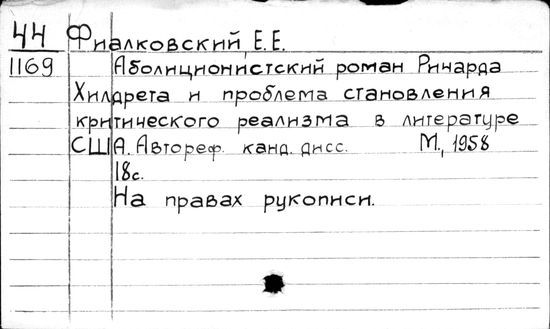 44 Фиалковский, Е.Е.
1169 Аболиционистский роман Ричарда
Хилдрета и проблема становления
критического реализма в литературе
США. Автореф. канд. дисс. М., 1958
18с.
На правах рукописи.